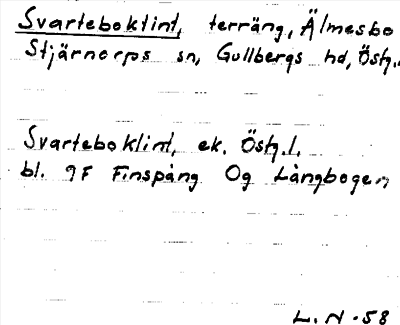 Svarteboktint, terräng, Älmesbo
Stjärnorps sn, Gullbergs hd, Östg.
Svarteboklint, ek. Östg.l.
bl. 9F Finspång Og Långbogen
L. N -58